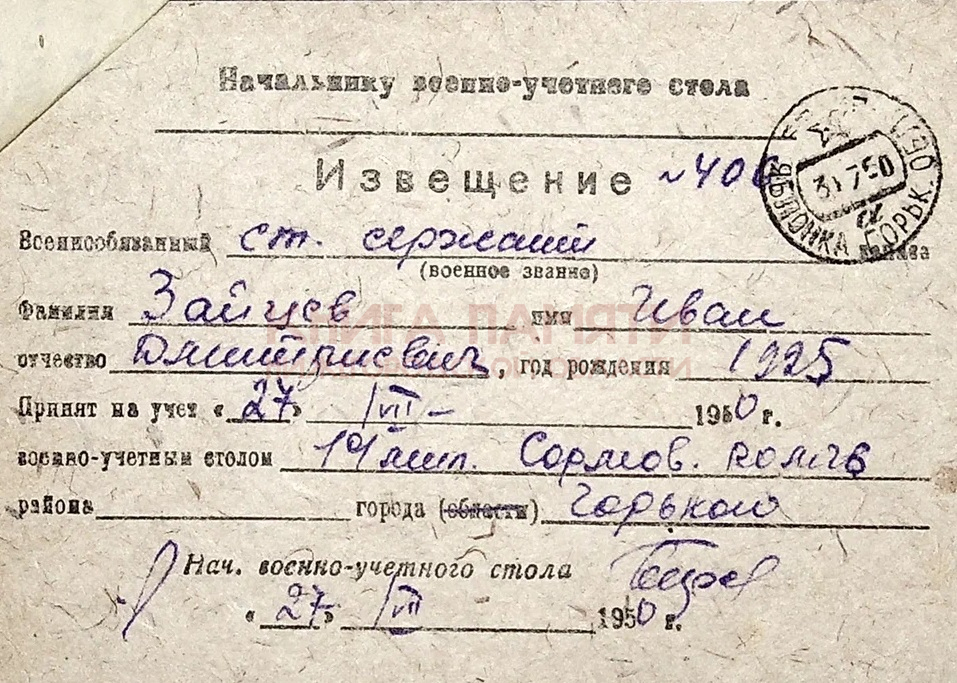 Начальнику военно-учетного стола
Извещение №406
Военнообязанный ст. сержант запаса
(военное звание)
Фамилия Зайцев имя Иван
КНИГА ПАМЯТИ
отчество Дмитриевич, год рождения 1925
Принят на учет «27» VII 1950 г.
военно-учетным столом 14 Сормов.
района города (области) Горького
Нач. военно-учетного стола
«27» VII 1950 г.
31 7 50
ГОРЬК. ОБЛ